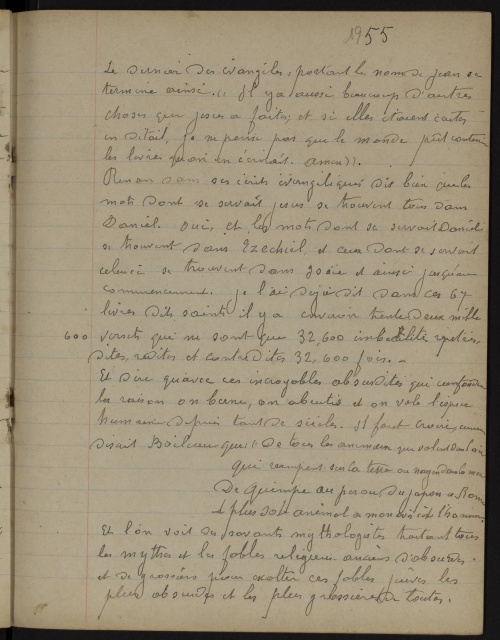 1955
Le dernier des évangiles, portant le nom de jean se
termine ainsi. (( Il y a aussi beaucoup d'autres
choses que jesus a faites; et si elles étaient ecrites
en détail, je ne pense pas que le monde pût contenir
les livres qu'on en écrirait. amen)).
Renan dans ses écrits évangeliques dit bien que les
mots dont se servait jesus se trouvent tous dans
Daniel. oui, et les mots dont se servait Daniel
se trouvent dans Ezechiel, et ceux dont se servait
celui-ci se trouvent dans Isaïe et aussi jusqu'au
commencement. je l'ai déjà dit dans ces 67
livres dits saints il y a environ trente deux mille
600 versets qui ne sont que 32,600 imbecilités répétées,
dites, redites et contredites 32,600 fois.
Et dire qu'avec ces incroyables absurdités qui confondent
la raison on berne, on abrutit et on vole l'espèce
humaine depuis tant de siècles. Il faut croire, comme
disait Boileau que: (( De tous les animaux qui volent dans l'air
qui rampent sur la terre ou nagent dans la mer
De quimper au perou du japon a Rome
le plus sot animal a mon avis c'est l'homme.
Et l'on voit des savants mythologistes traitant tous
les mythes et les fables religieux anciens d'absurdes
et de grossiers pour exalter ces fables juives les
plus absurdes et les plus grossières de toutes.